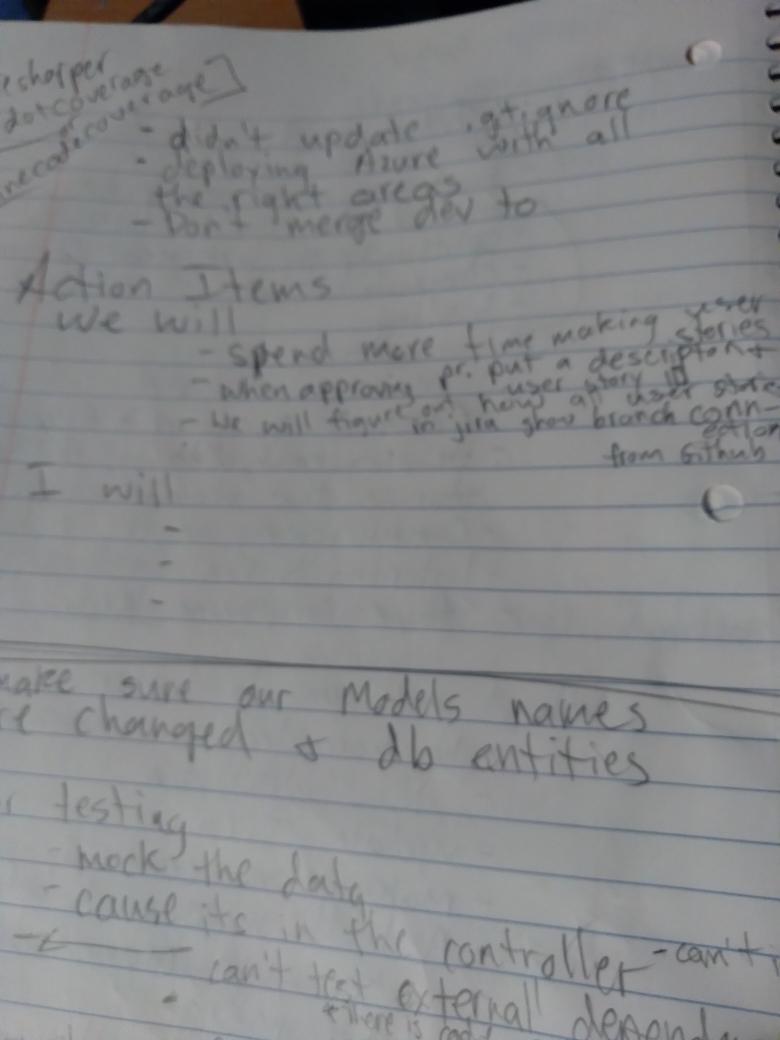 esharper
dotcoverage]
or
necodecoverage
- didn't update .gitignore
- deploying Azure with all
the right areas
- Don't merge dev to
Action Items
We will
- spend more time making user stories
- when approving pr. put a description +
user story ID
- We will figure out how all user stories
in jira show branch conn-
ection
from Github
I will
-
-
-
make sure our Models names
re changed & db entities
r testing
- mock the data
- cause its in the controller - can't
can't test external depend
+ there is